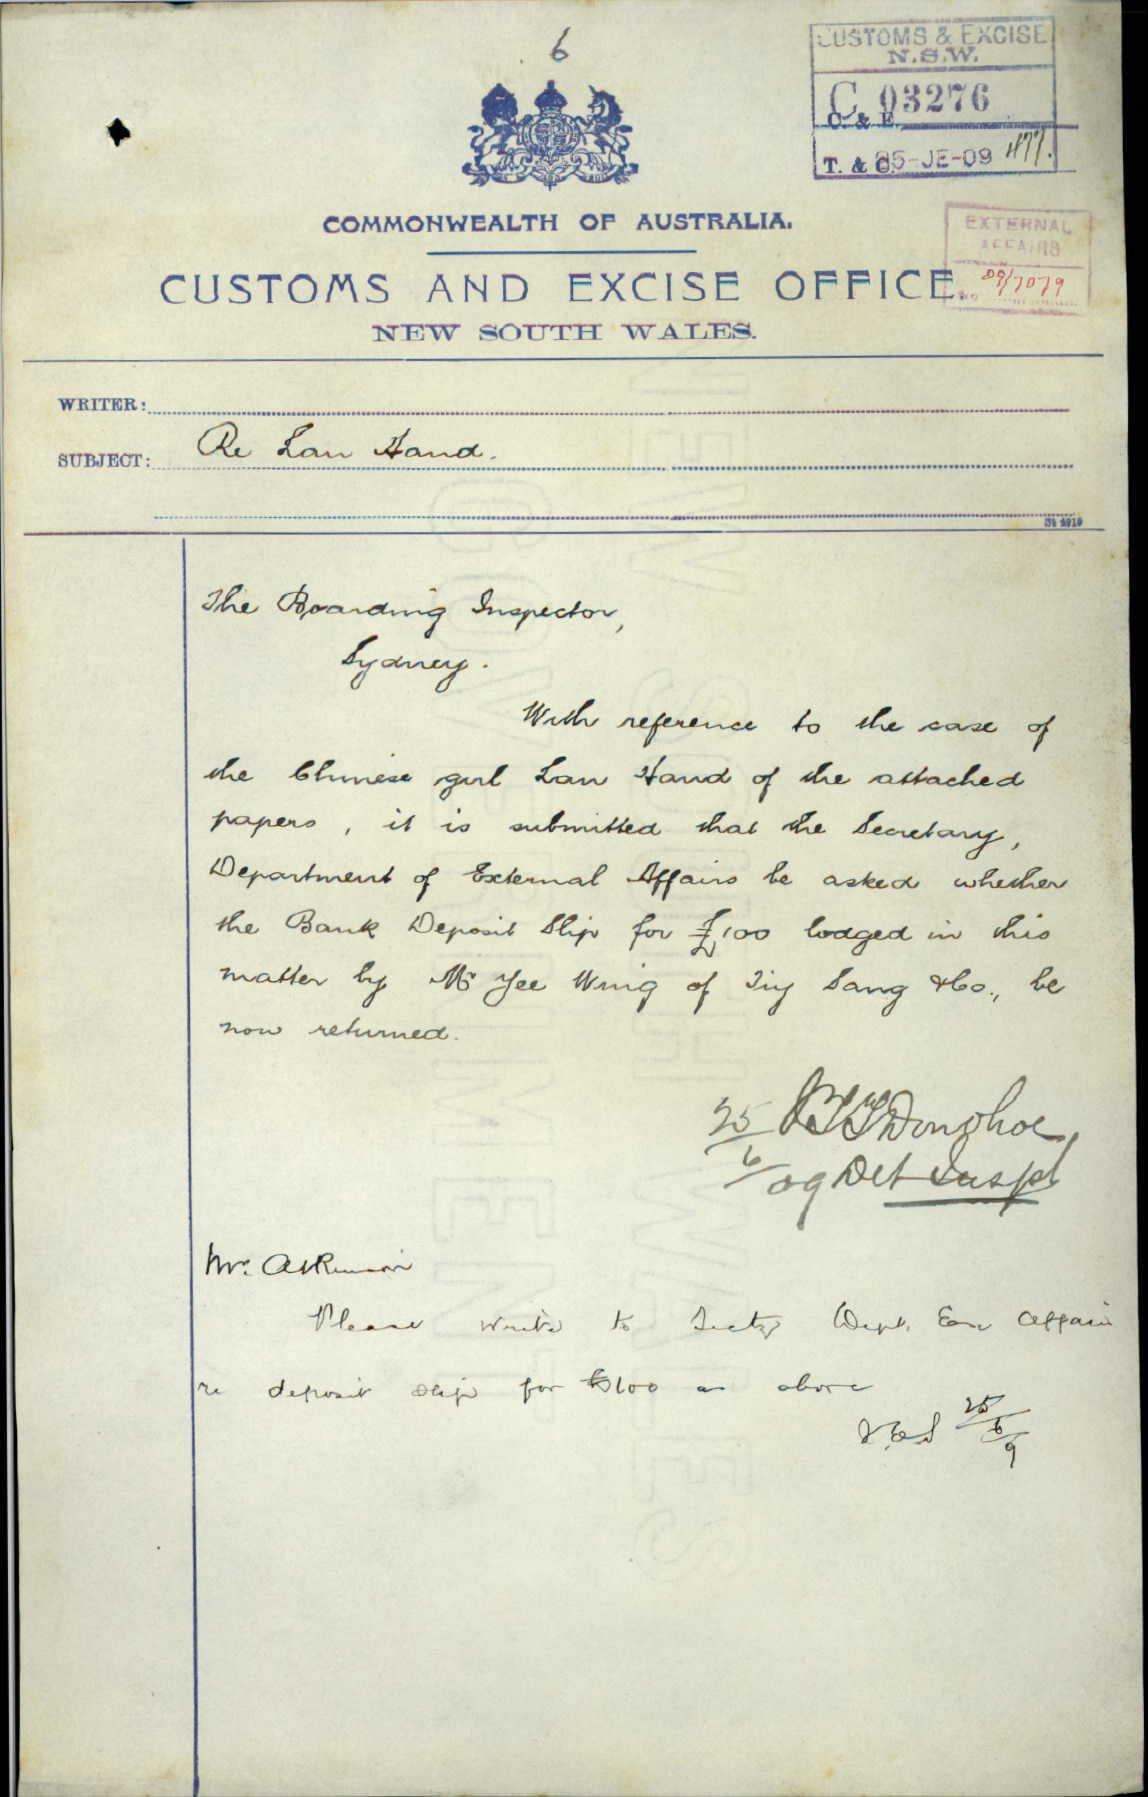 6
CUSTOMS & EXCISE
N.S.W.
C 03276
C. & E.
T. & C. 25-JE-09 477.
COMMONWEALTH OF AUSTRALIA.
EXTERNAL
AFFAIRS
No. 09/7079
CUSTOMS AND EXCISE OFFICE.
NEW SOUTH WALES.
WRITER:
SUBJECT: Re Lau Hand.
The Boarding Inspector,
Sydney.
With reference to the case of
the Chinese girl Lau Hand of the attached
papers, it is submitted that the Secretary,
Department of External Affairs be asked whether
the Bank Deposit Slip for £100 lodged in this
matter by Mr Yee Wing of Tiy Sang & Co., be
now returned.
25/6/09 Donohoe
Det Inspr
Mr. Atkinson
Please write to Secty Dept. Ex Affairs
re deposit slip for £100 as above
25/6/9